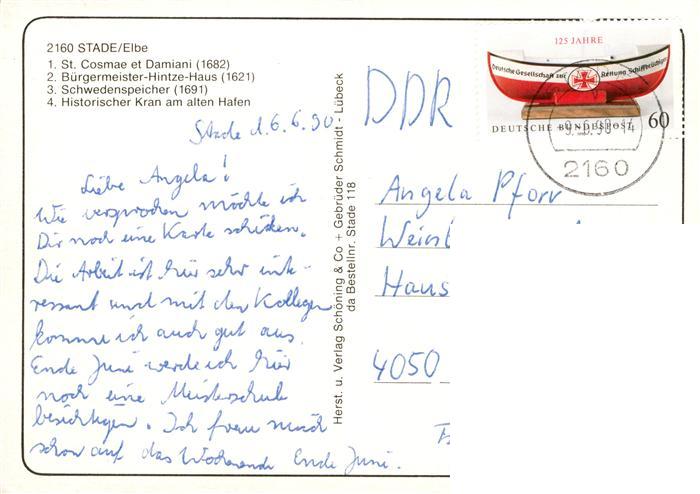 2160 STADE/Elbe
1. St. Cosmae et Damiani (1682)
2. Bürgermeister-Hintze-Haus (1621)
3. Schwedenspeicher (1691)
4. Historischer Kran am alten Hafen
Stade d. 6.6.90
Liebe Angela!
Wie versprochen möchte ich
Dir noch eine Karte schicken.
Die Arbeit ist hier sehr inte-
ressant und mit den Kollegen
komme ich auch gut aus.
Ende Juni werde ich hier
noch eine Meisterschule
besichtigen. Ich freu mich
schon auf das Wochenende Ende Juni.
Herst. u. Verlag Schöning & Co + Gebrüder Schmidt - Lübeck
da Bestellnr. Stade 118
DDR
125 JAHRE
Deutsche Gesellschaft zur Rettung Schiffbrüchiger
DEUTSCHE BUNDESPOST 60
2160
Angela Pforr
Haus
4050